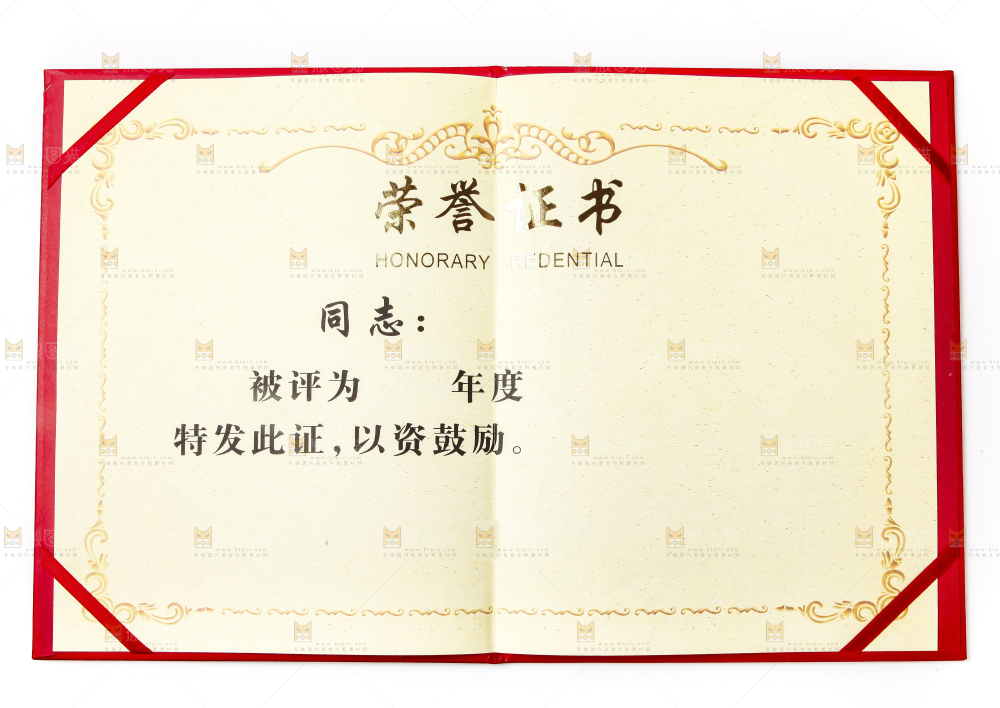 荣誉证书
HONORARY CREDENTIAL
同志：
被评为 年度
特发此证，以资鼓励。